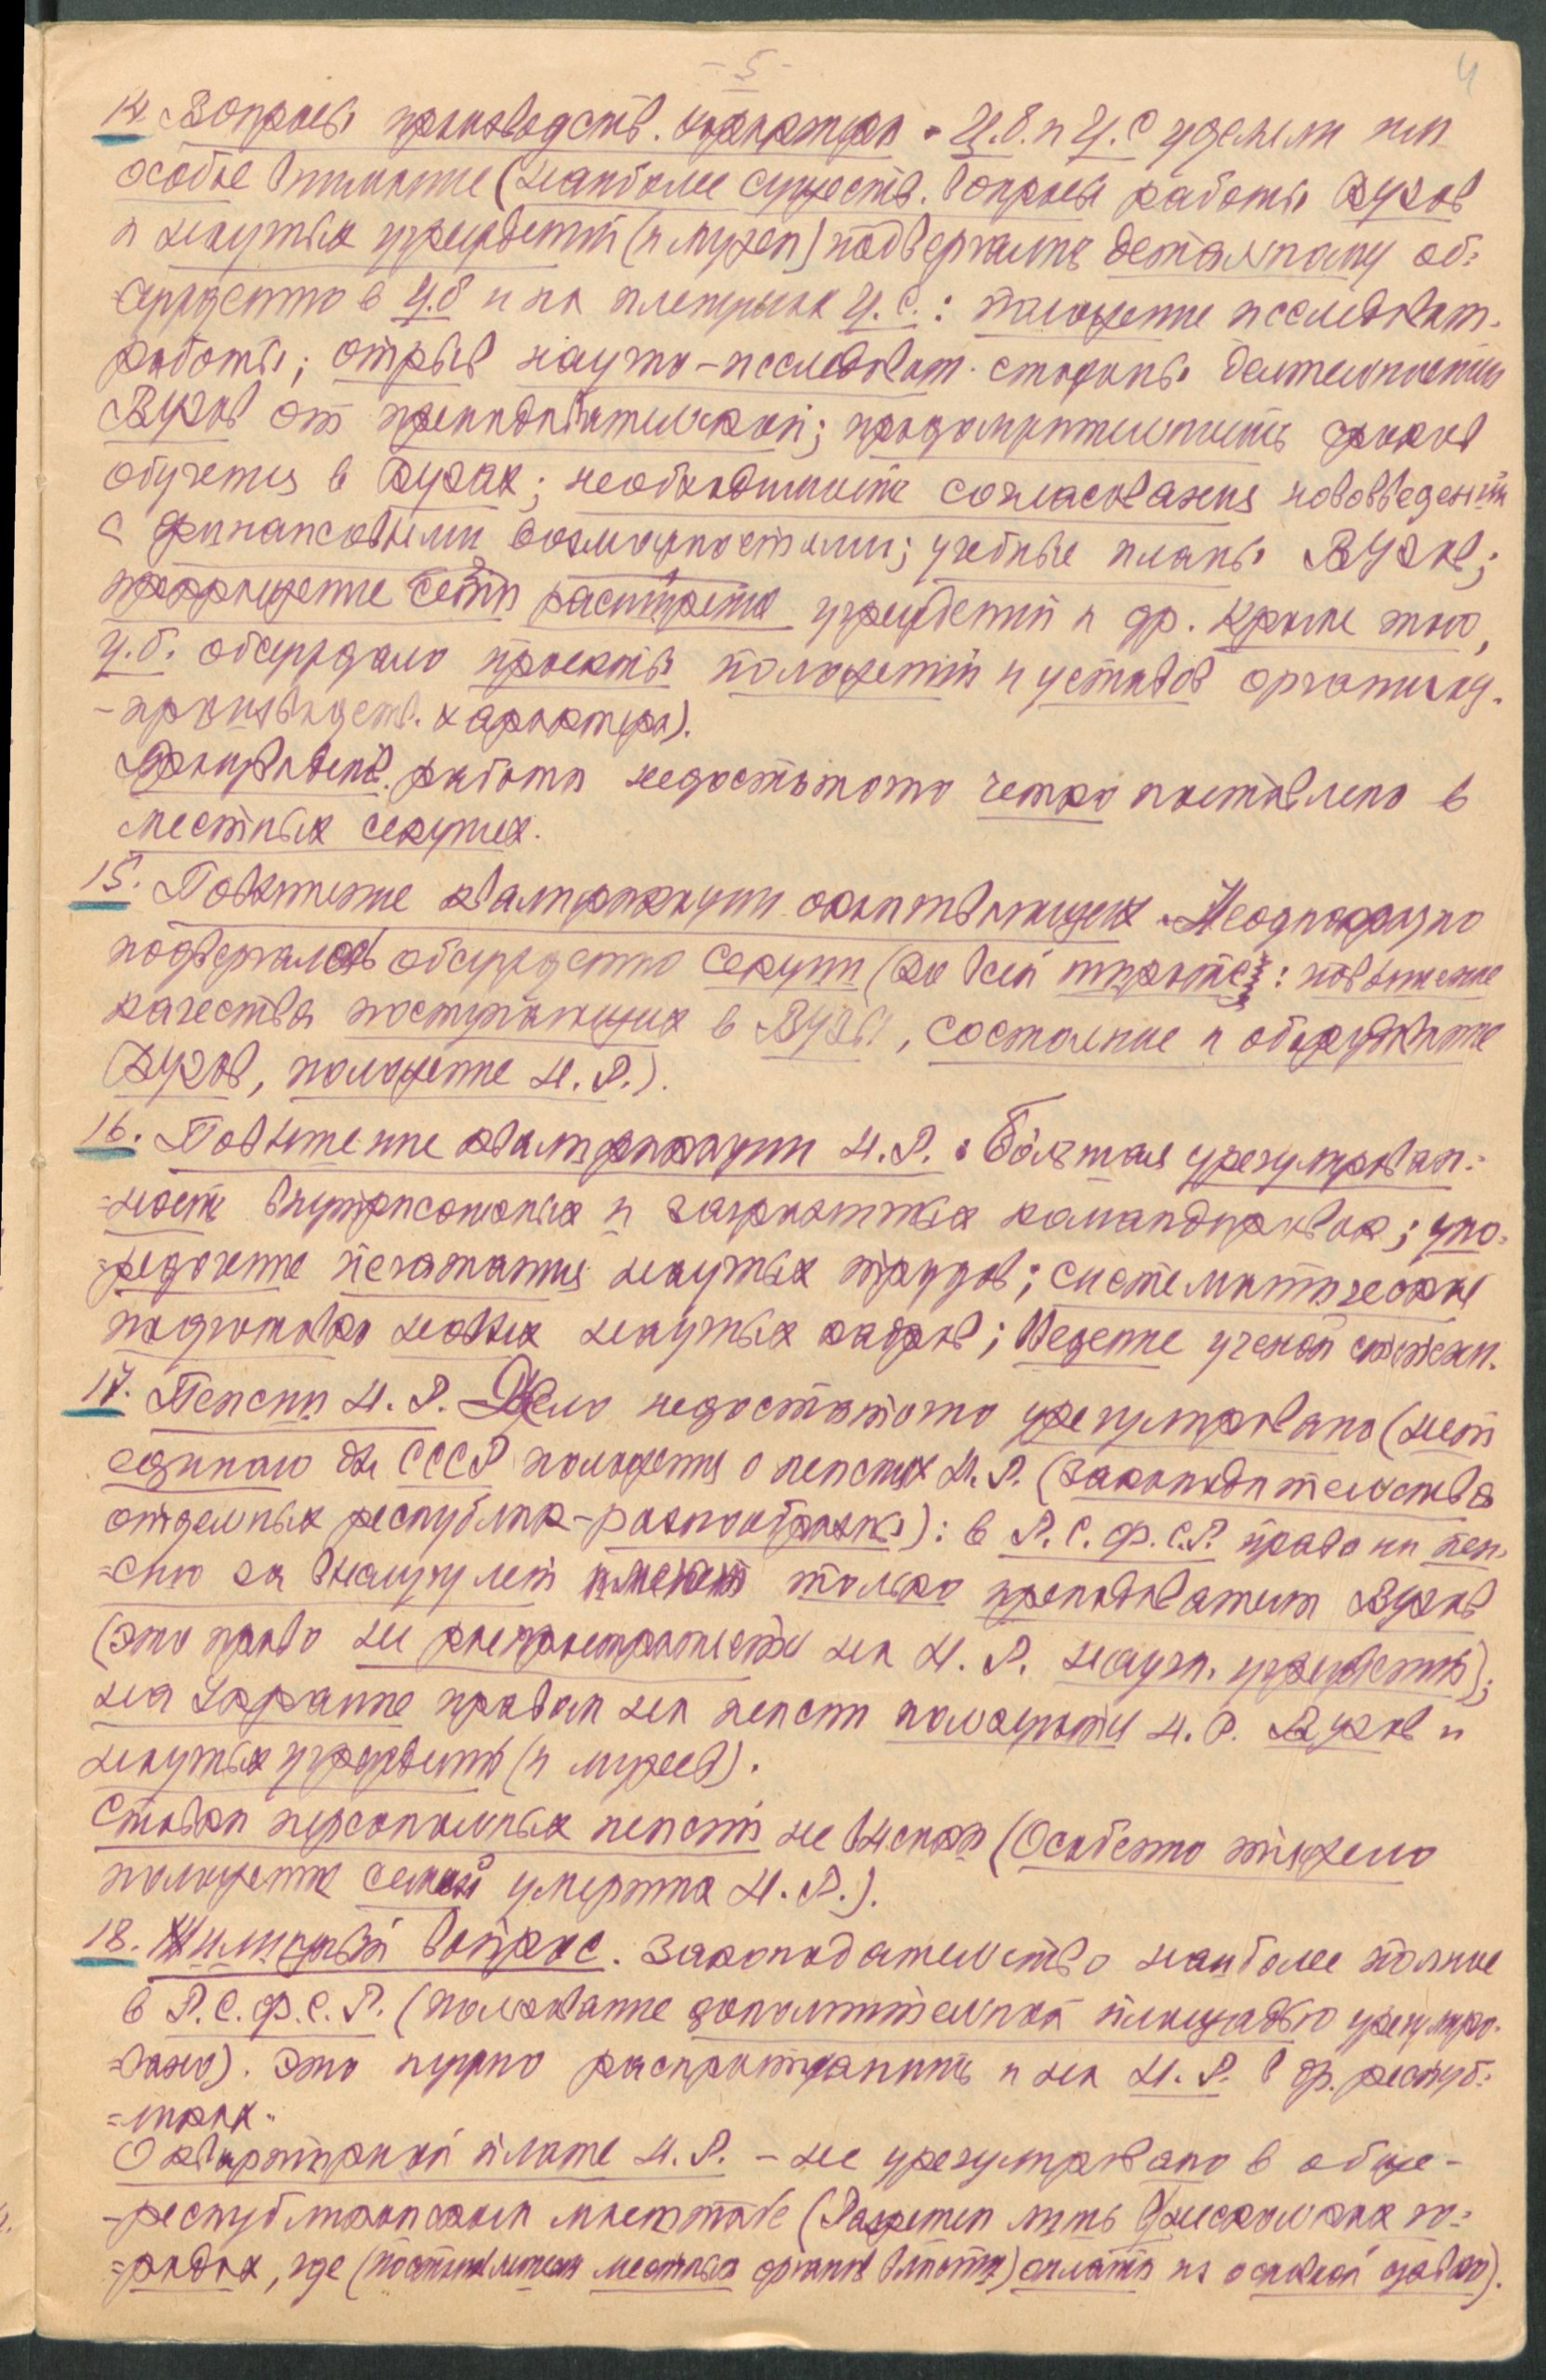 - 5 -
4
14. Вопросы производств. характера. Ц.б. и Ц.С уделяли им
особое внимание (наиболее существ. вопросы работы Вузов
и научных учреждений (и музеи) подвергались детальному об-
=суждению в Ц.б и на пленумах Ц.С.: положение исследоват.
работы; отрыв научно-исследоват. стороны деятельности
Вузов от преподавательской; продолжительность сроков
обучения в Вузах; необходимость согласования нововведений
с финансовыми возможностями; учебные планы Вузов;
сети расширение учреждений и др. Кроме того,
Ц.б. обсуждало проекты положений и уставов организац.
-производств. характера).
работа недостаточно четко поставлена в
местных секциях.
15. Повышение квалификации оканчивающих. Неоднократно
подвергалось обсуждению Секции (во всей широте: повышение
качества поступающих в Вузы, состояние и оборудование
Вузов, положение Н.Р.).
16. Повышение квалификации Н.Р. Большая урегулирован-
=ность внутрисоюзных и заграничных командировок; упо-
=рядочение печатания научных трудов; систематическая
подготовка новых научных кадров; Введение ученой степени.
17. Пенсии Н.Р. Дело недостаточно урегулировано (нет
единого для СССР положения о пенсиях Н.Р. (Законодательства
отдельных республик-разнообразны): в Р.С.Ф.С.Р. право на пен-
=сию за выслугу лет имеют только преподаватели Вузов
(это право не распространяется на Н.Р. научн. учреждений);
на Украине правом на пенсии пользуются Н.Р. Вузов и
научных учреждений (и музеев).
Ставки персональных пенсий не высоки (Особенно тяжело
положение семей умерших Н.Р.).
18. Жилищный вопрос. Законодательство наиболее полное
в Р.С.Ф.С.Р. (пользование дополнительной площадью урегулиро-
=вано). Это нужно распространить и на Н.Р. в др. респуб-
=ликах.
О квартирной плате Н.Р. - не урегулировано в обще-
-республиканском масштабе (Разрешен лишь в нескольких го-
=родах, где (постановлением местных органов власти) оплата из основной ставки).